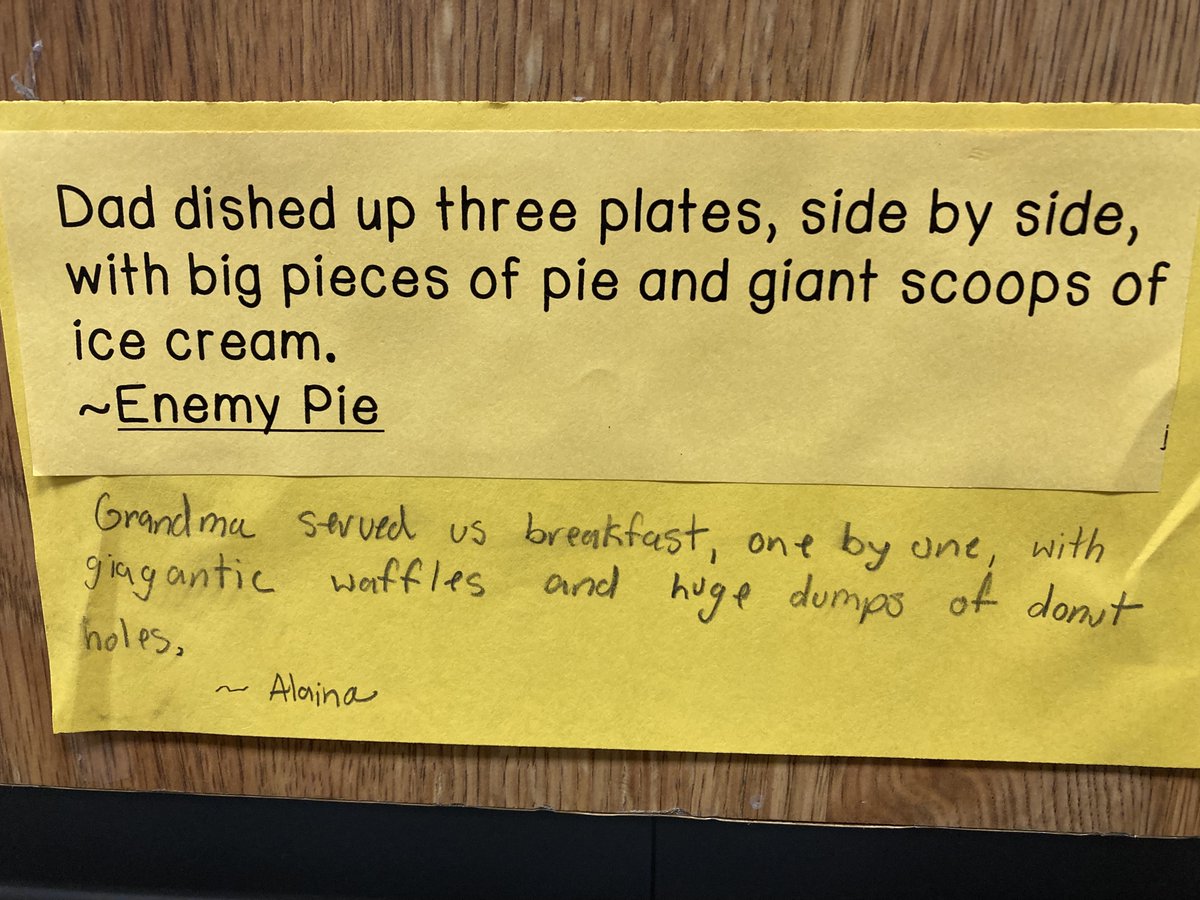 Dad dished up three plates, side by side,
with big pieces of pie and giant scoops of
ice cream.
~Enemy Pie
j
Grandma served us breakfast, one by one, with
giagantic waffles and huge dumps of donut
holes.
~ Alaina